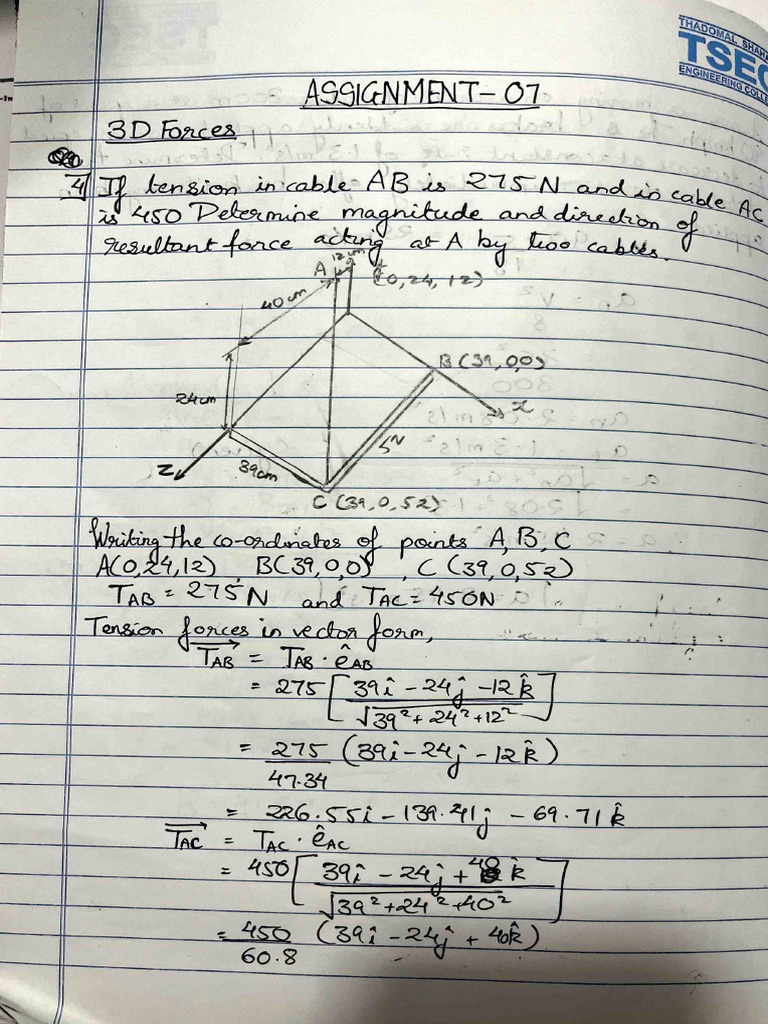 THADOMAL SHAHA
TSEC
ENGINEERING COLLE
ASSIGNMENT-07
3D Forces
4] If tension in cable AB is 275 N and in cable AC
is 450 Determine magnitude and direction of
resultant force acting at A by two cables.
12cm
A
(0,24,12)
40cm
B(39,0,0)
24cm
x
5N
z
39cm
C (39,0,52)
Writing the co-ordinates of points A, B, C
A(0,24,12) B(39,0,0) , C (39,0,52)
TAB = 275 N and TAC = 450N
Tension forces in vector form,
TAB = TAB . êAB
= 275 [ 39î - 24ĵ - 12k̂ / √39² + 24² + 12² ]
= 275 / 47.34 (39î - 24ĵ - 12k̂)
= 226.55î - 139.41ĵ - 69.71k̂
TAC = TAC . êAC
= 450 [ 39î - 24ĵ + 40k̂ / √39² + 24² + 40² ]
= 450 / 60.8 (39î - 24ĵ + 40k̂)